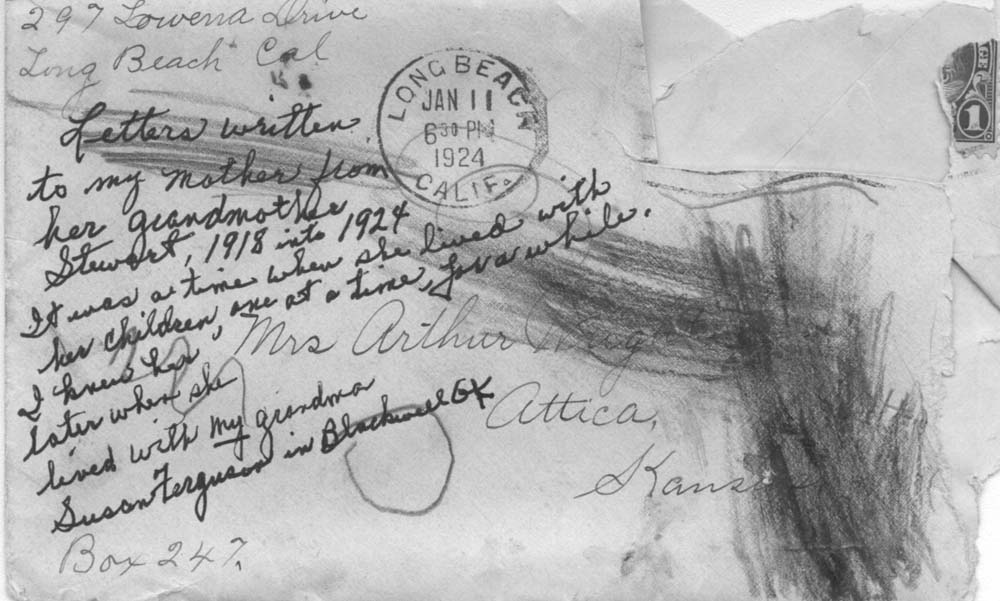 297 Lowena Drive
Long Beach Cal
LONG BEACH
JAN 11
6 30 PM
1924
CALIF.
1
Letters written
to my mother from
her grandmother
Stewart, 1918 into 1924
It was a time when she lived with
her children, one at a time, for a while.
I knew her,
later when she
lived with my grandma
Susan Ferguson in Blackwell OK
Mrs Arthur Wright
Attica,
Kansas
Box 247.